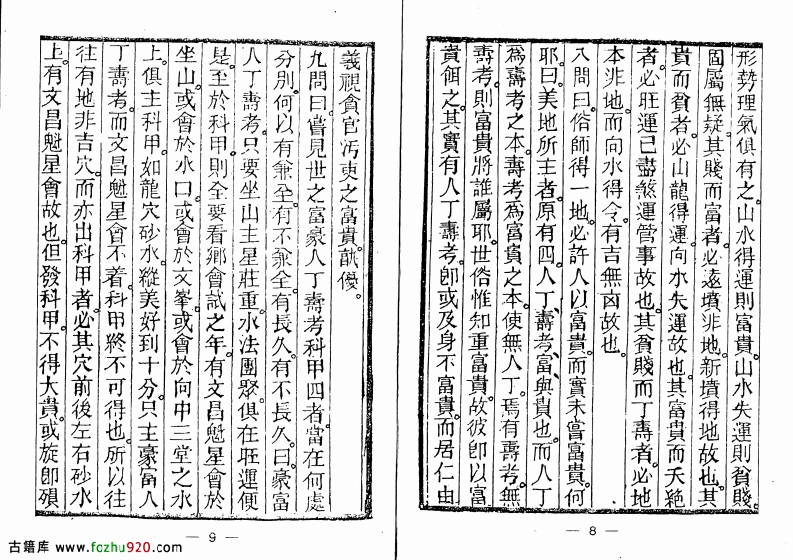 形勢理氣俱有之。山水得運則富貴。山水失運則貧賤。
固屬無疑。其賤而富者。必遠墳非地。新墳得地故也。其
貴而貧者。必山龍得運。向水失運故也。其富貴而夭絶
者。必旺運已盡。煞運管事故也。其貧賤而丁壽者。必地
本非地。而向水得令。有吉無凶故也。
八問曰。俗師得一地。必許人以富貴。而實未嘗富貴。何
耶。曰。美地所主者。原有四。人丁壽考。富與貴也。而人丁
爲壽考之本。壽考爲富貴之本。使無人丁。焉有壽考。無
壽考。則富貴將誰屬耶。世俗惟知重富貴。故彼卽以富
貴餌之。其實有人丁壽考。卽或及身不富貴。而居仁由
— 8 —
義。視貪官汚吏之富貴孰優。
九問曰。嘗見世之富豪。人丁。壽考。科甲。四者當在何處
分別。何以有兼全。有不兼全。有長久。有不長久。曰。豪富
人丁壽考。只要坐山主星莊重。水法團聚。俱在旺運便
是。至於科甲。則全要看鄉會試之年。有文昌魁星會於
坐山。或會於水口。或會於文峯。或會於向中三堂之水
上。俱主科甲。如龍穴砂水。縱美好到十分。只主豪富人
丁壽考。而文昌魁星會不着。科甲終不可得也。所以往
往有地非吉穴。而亦出科甲者。必其穴前後左右砂水
上。有文昌魁星會故也。但發科甲。不得大貴。或旋卽殞
— 9 —
古籍库 www.fozhu920.com